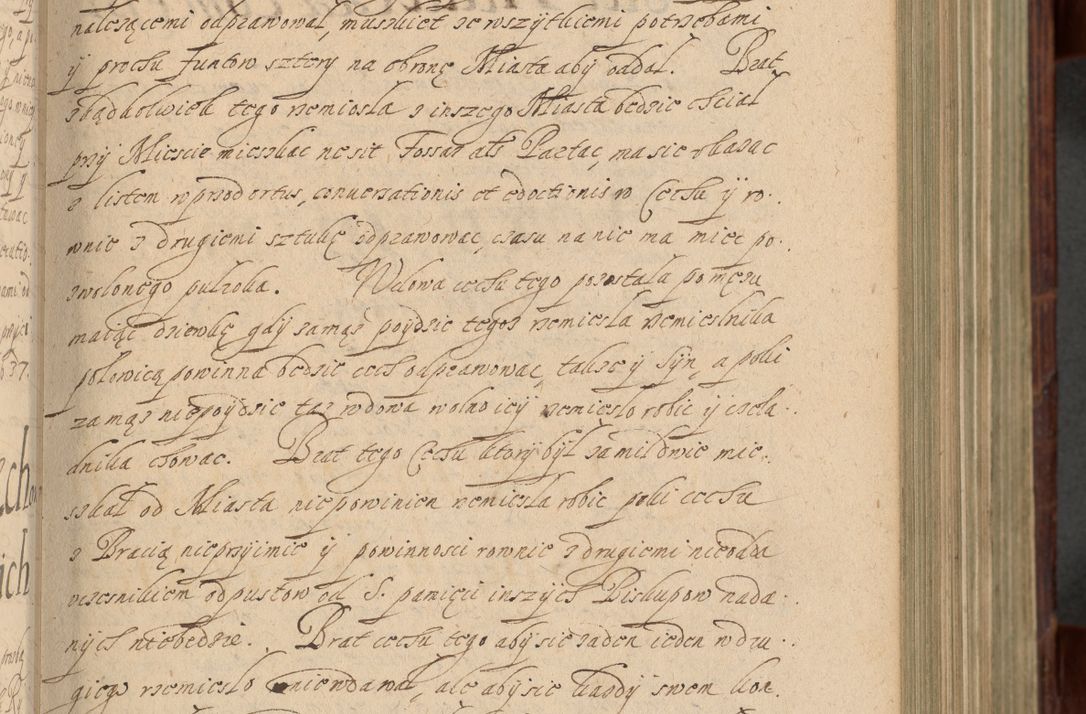 należącemi odprawował, muszkiet ze wszytkiemi potrzebami
y prochu funtow sztery na obronę Miasta aby oddal. Brat
zkądkolwiek tego rzemiosla z inszego Miasta będzie chcial
przy Miescie mieszkac ma sie okazac
z listem wprzod ortus, conversationis et edoctionis w Cechu y ro-
wnie z drugiemi sztukę odprawowac, czasu na nie ma miec po-
zwolonego pulroka. Wdowa cechu tego pozostala po męzu
maiąc dziewkę gdy zamąz poydzie tegoz rzemiesla rzemieslnika
polowicą powinna będzie cech odprawowac, takze y syn, a poki
zamąz niepoydzie taz wdowa wolno iey rzemieslo robic y czela-
dnika chowac. Brat tego Cechu ktory był za mil dwie mie-
szkal od Miasta niepowinien rzemiesla robic poki cechu
z Bracią nieprzyimie y powinnosci rownie z drugiemi nieodda
uczesnikiem odpustow od S. pamięci inszych Biskupow nada-
nych niebędzie. Brat cechu tego aby sie zaden ieden w dru-
giego rzemieslo niewdawal, ale aby sie kazdy swem kon-